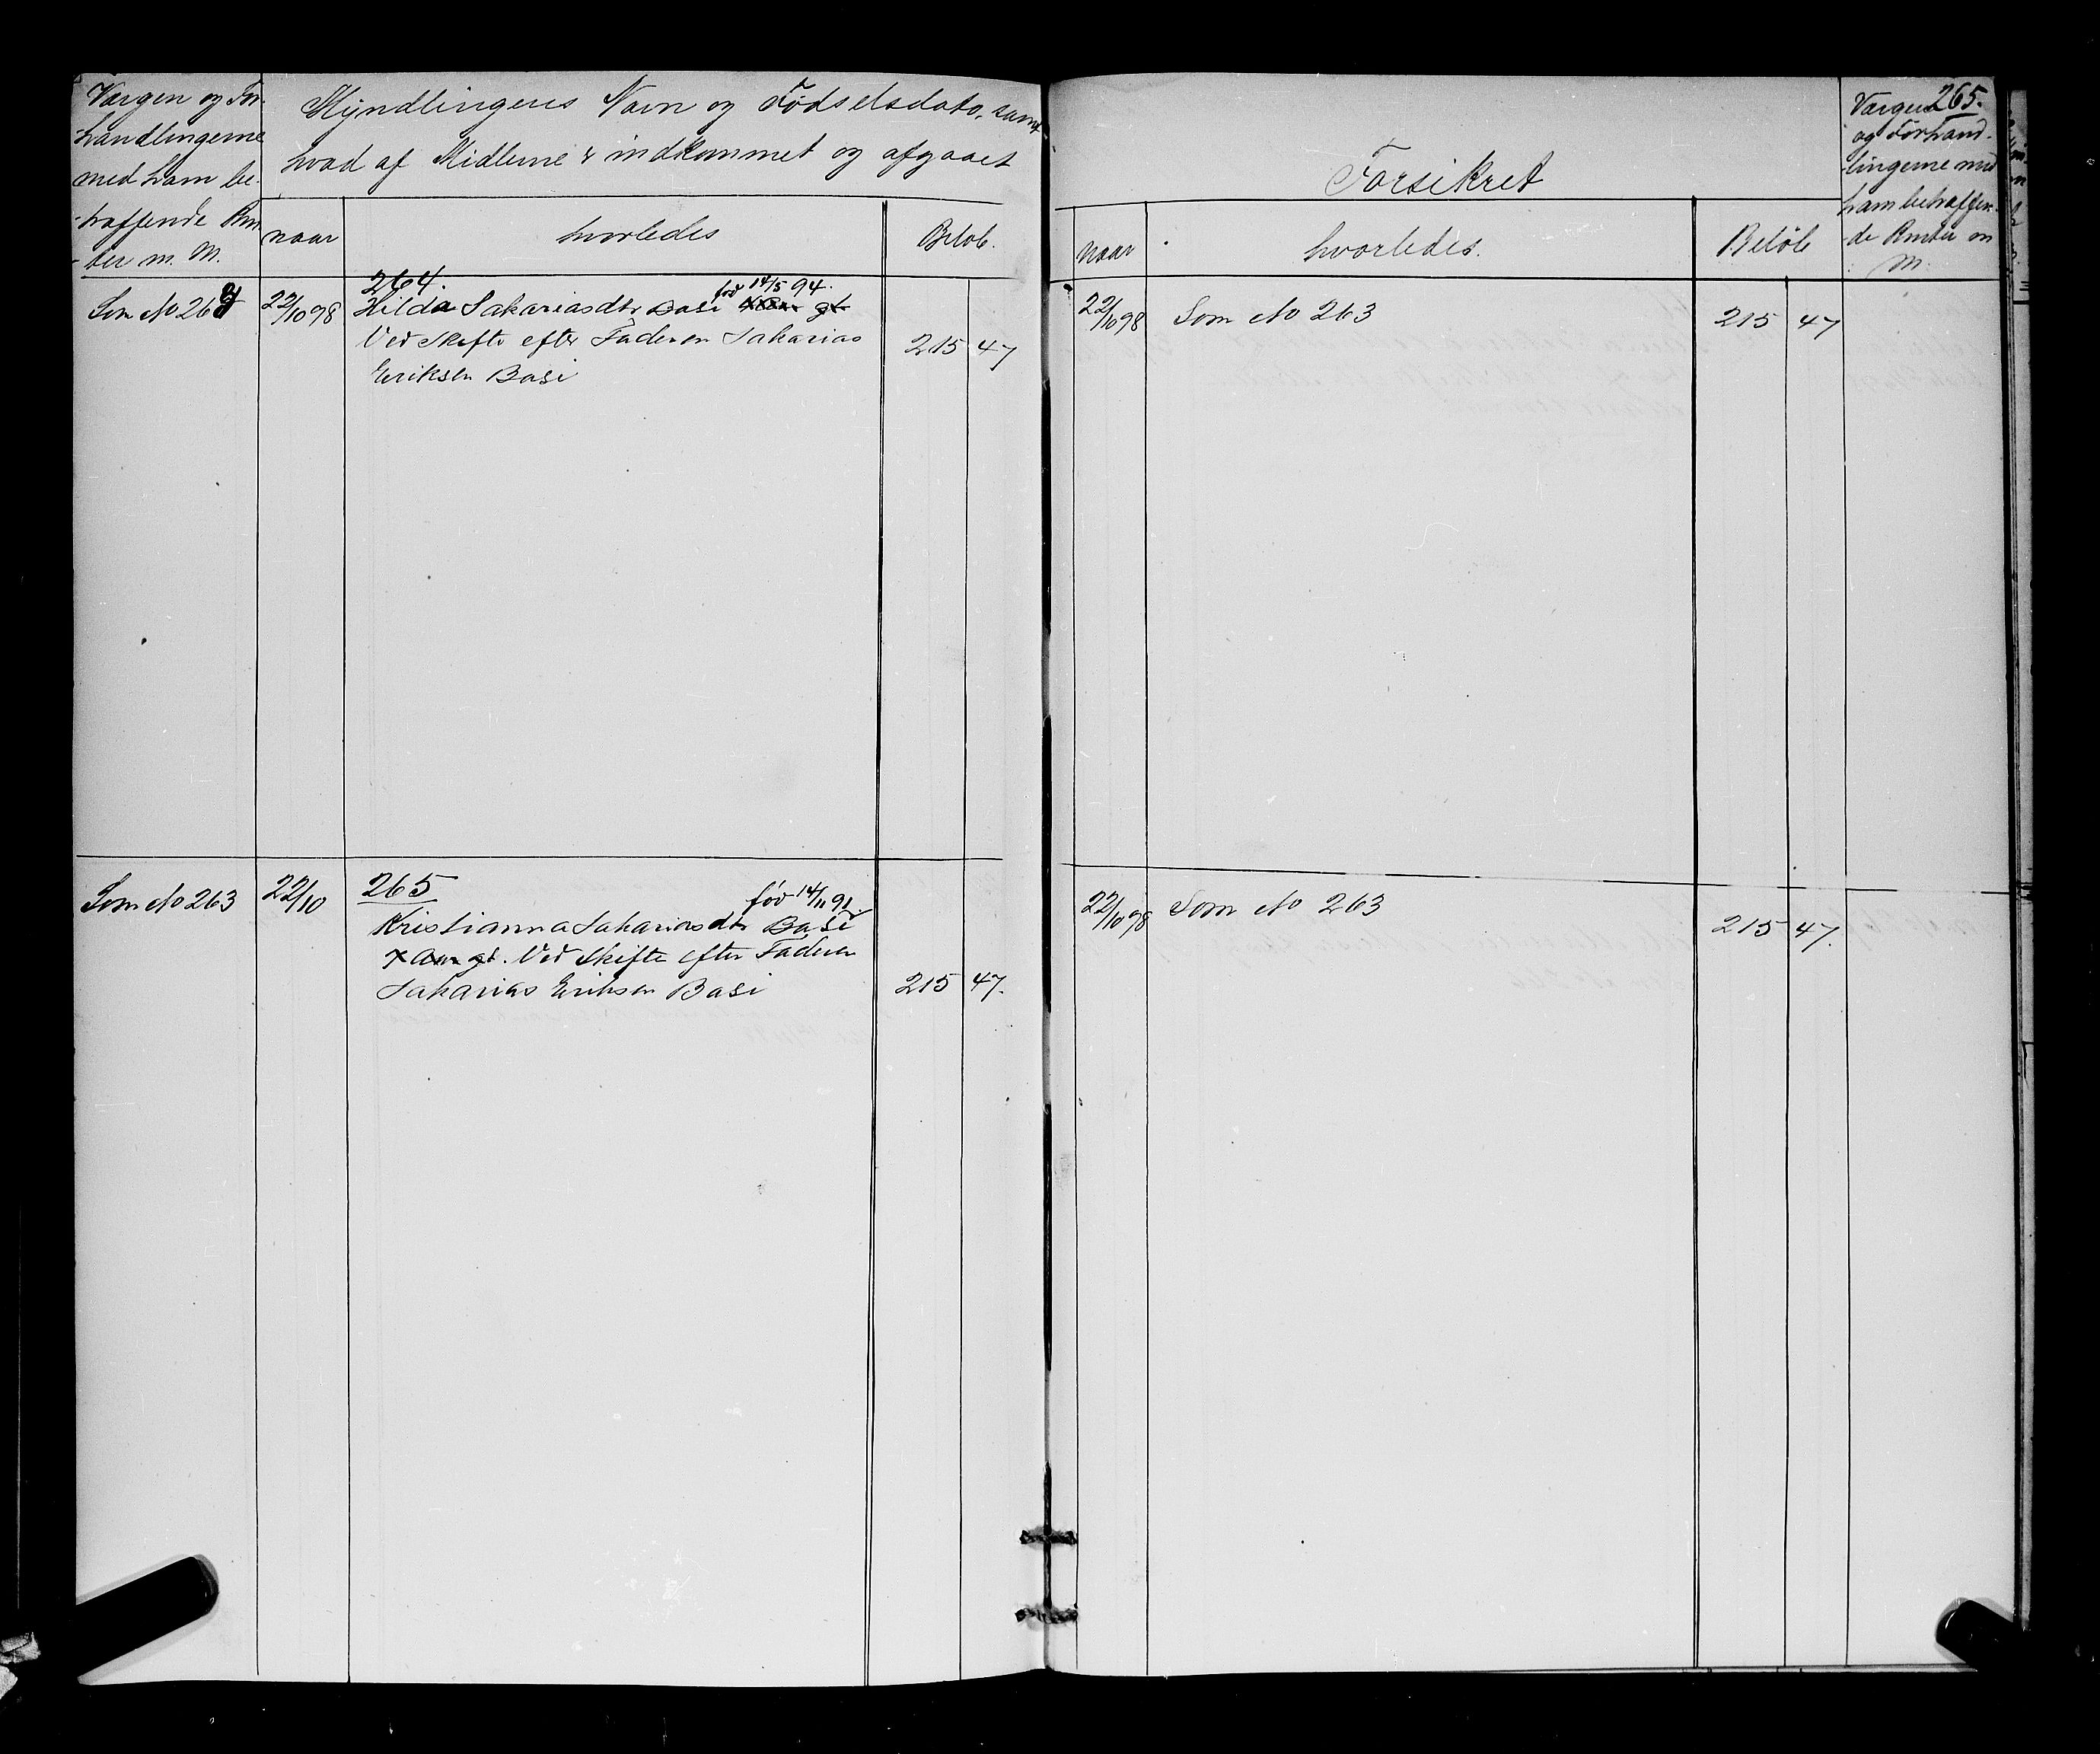 Værgen og For-
handlingerne
med ham be-
træffende Ren-
ter m. M.
Myndlingens Navn og Fødselsdato, samt
hvad af Midlerne er indkommet og afgaaet
naar
hvorledes
Beløb.
Som No 263
22/10 98
264.
født 14/5 94.
Hilda Sakariasdtr Basi
Ved Skifte efter Faderen Sakarias
Eriksen Basi
215 47
Som No 263
22/10
265
född 14/11 91.
Kristianna Sakariasdtr Basi
Ved Skifte efter Faderen
Sakarias Eriksen Basi
215 47.
265.
Forsikret
naar
hvorledes.
Beløb
Værgen
og Forhand-
lingerne med
ham betræffen-
de Renter m
M.
22/10 98
Som No 263
215 47
22/10 98
Som No 263
215 47.